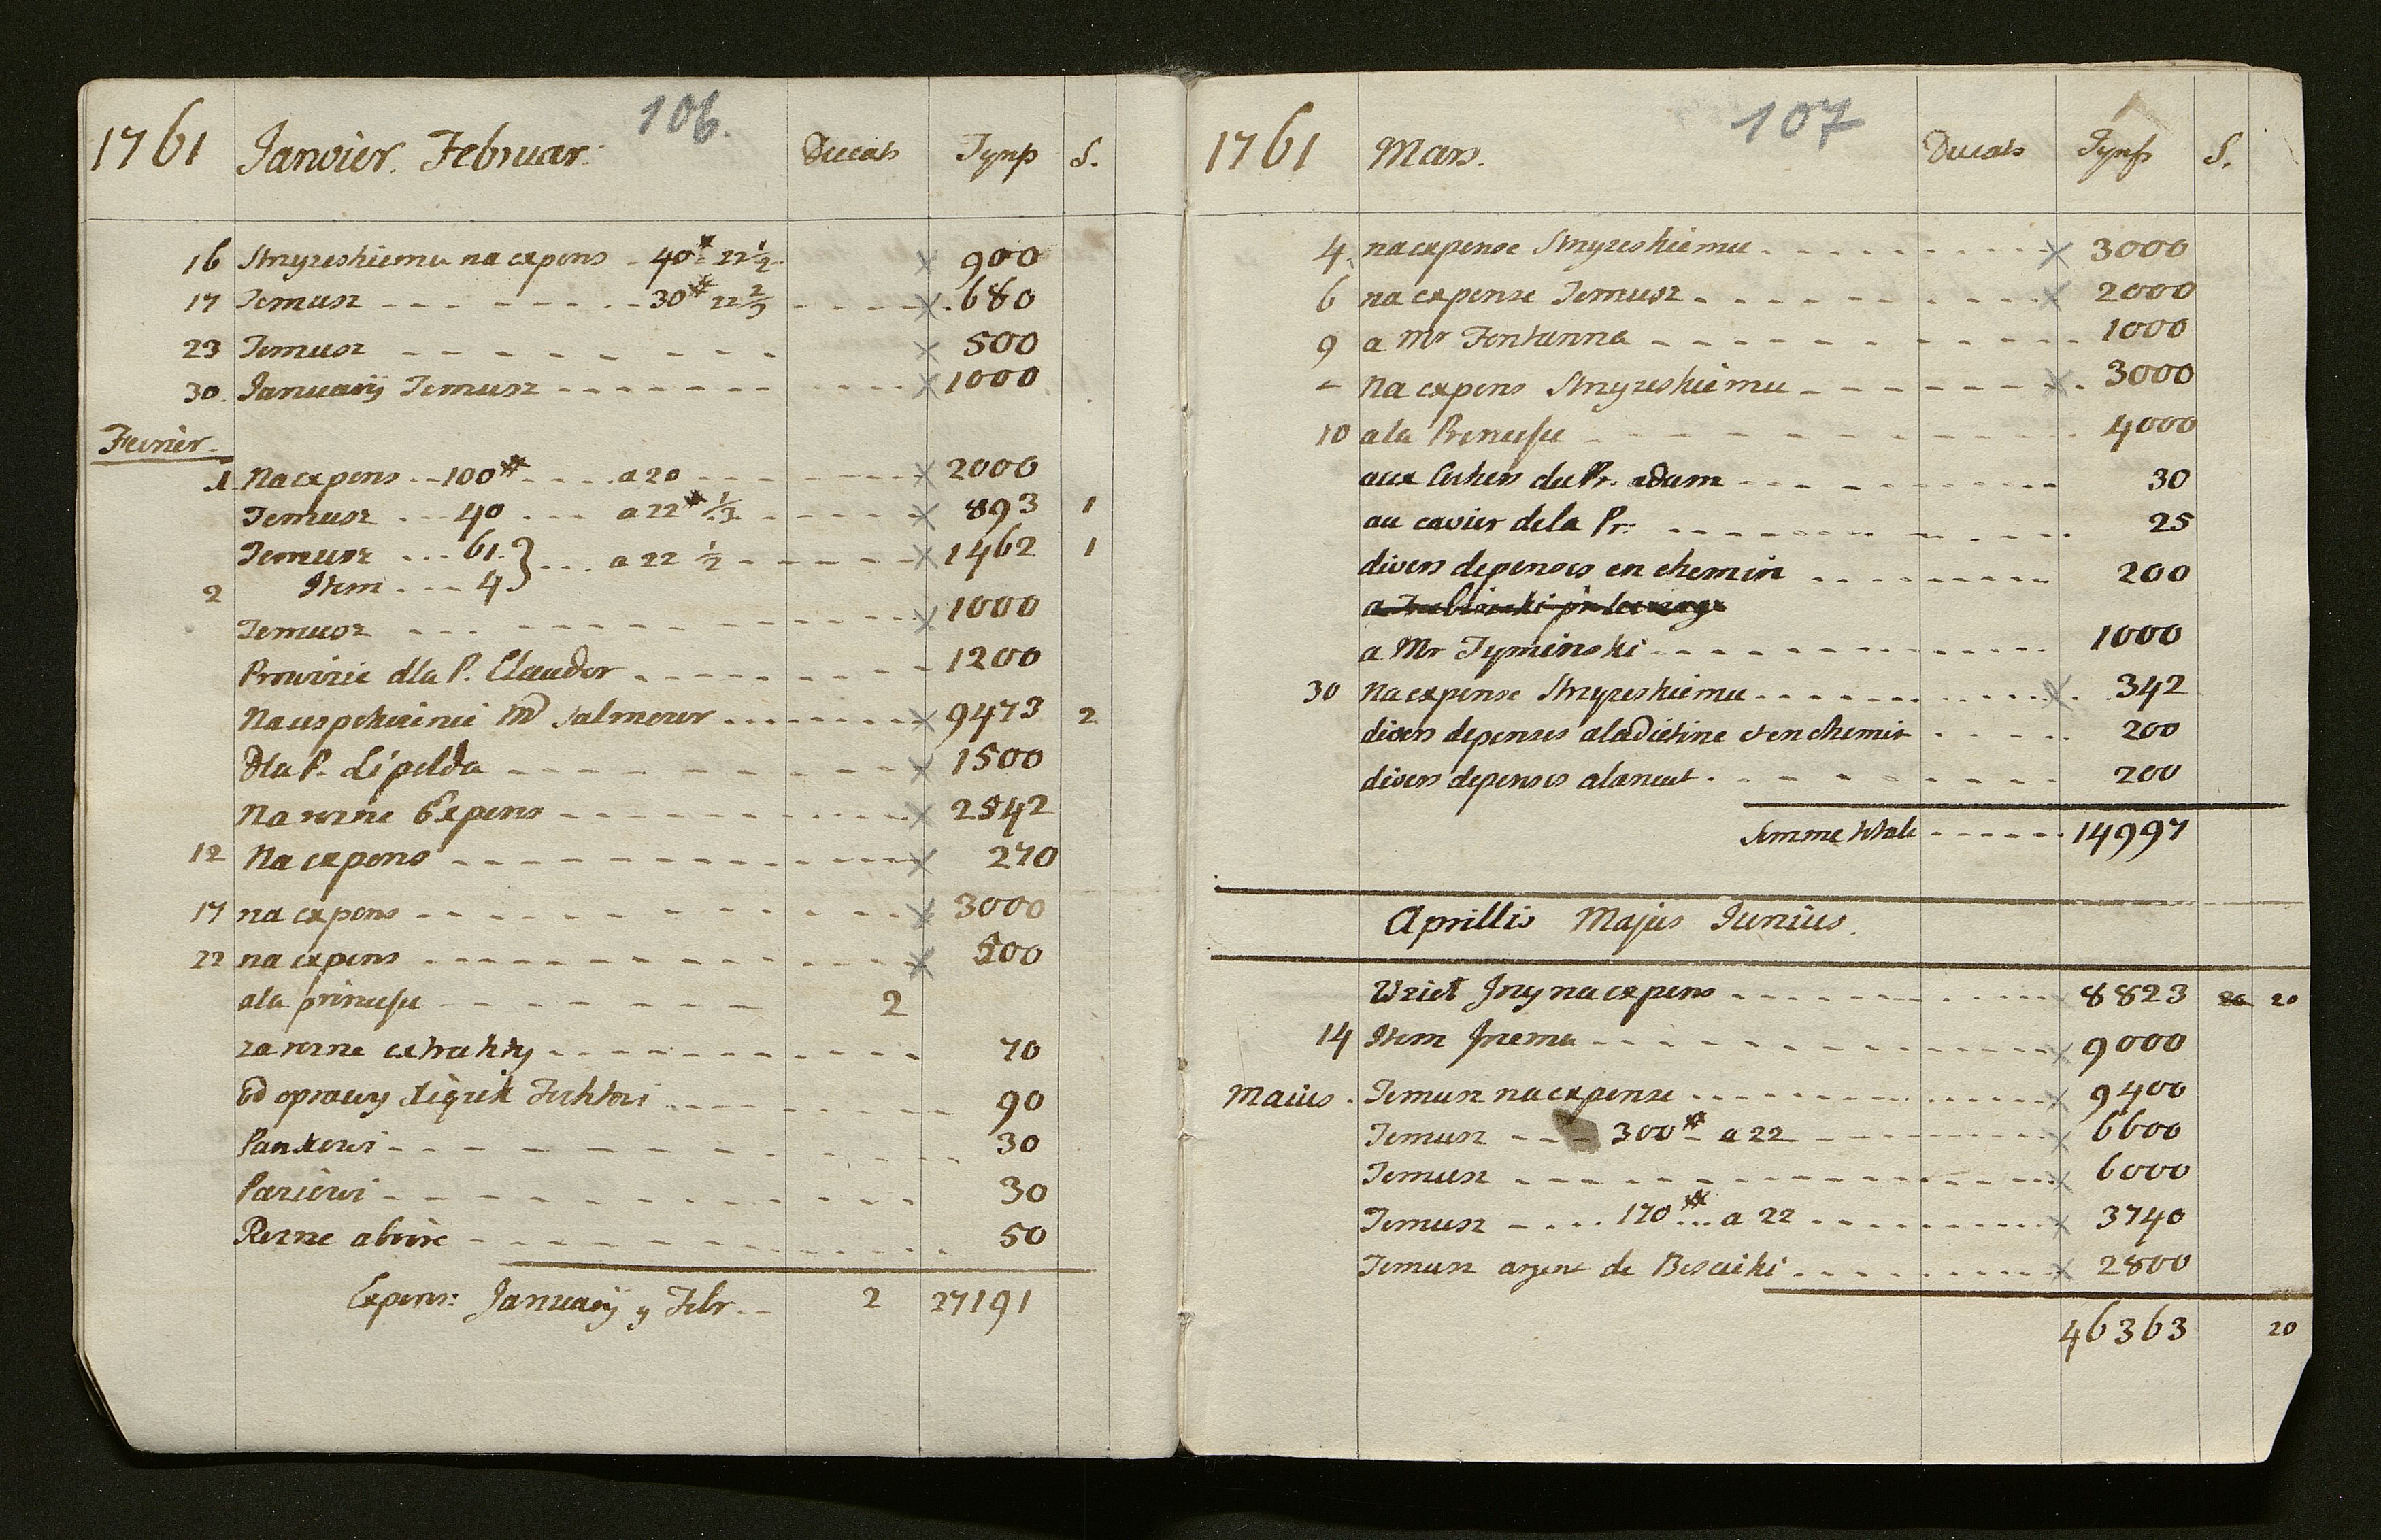 106.
1761 Janvier. Februar: Ducats Tynf S.
16 Stryzeskiemu na expens 40# 22 1/2 900
17 Temusz 30# 22 2/3 680
23 Temusz 500
30. Januarÿ Temusz 1000
Fevrier.
1. Na expens 100# a 20 2000
Temusz 40 a 22# 1/3 893 1
Temusz 61. } a 22 1/2 1462 1
2 Item 4
Temusz 1000
Prowizie dla P. Clauder 1200
Na uspokoienie Md Salmour 9473 2
Dla P. Lipelda 1500
Na rozne Expens 2542
12 Na expens 270
17 na expens 3000
22 na expens 500
a la princesse 2
za rozne extrakty 70
Od oprawy 90
30
Paziowi 30
Rozne a boire 50
Expens: Januarÿ y Febr. 2 27191
107
1761 Mars. Ducats Tynf S.
4. na expense Stryzeskiemu 3000
6 na expense Temusz 2000
9 a Mr Fontanna 1000
- Na expens Stryzeskiemu 3000
10 a la Princesse 4000
aux du Pr. adam 30
au de la Pr: 25
divers depenses en chemin 200
a Mr Tyminski 1000
30 Na expense Stryzeskiemu 342
divers depenses a la Dietine et en chemin 200
divers depenses a lancut. 200
Somme totale 14997
Aprillis Majus Junius.
Wziet na expens 8823 20
14 Item 9000
Maius. Temusz na expense 9400
Temusz 300# a 22 6600
Temusz 6000
Temusz 170# a 22 3740
Temusz argent de 2800
46363 20